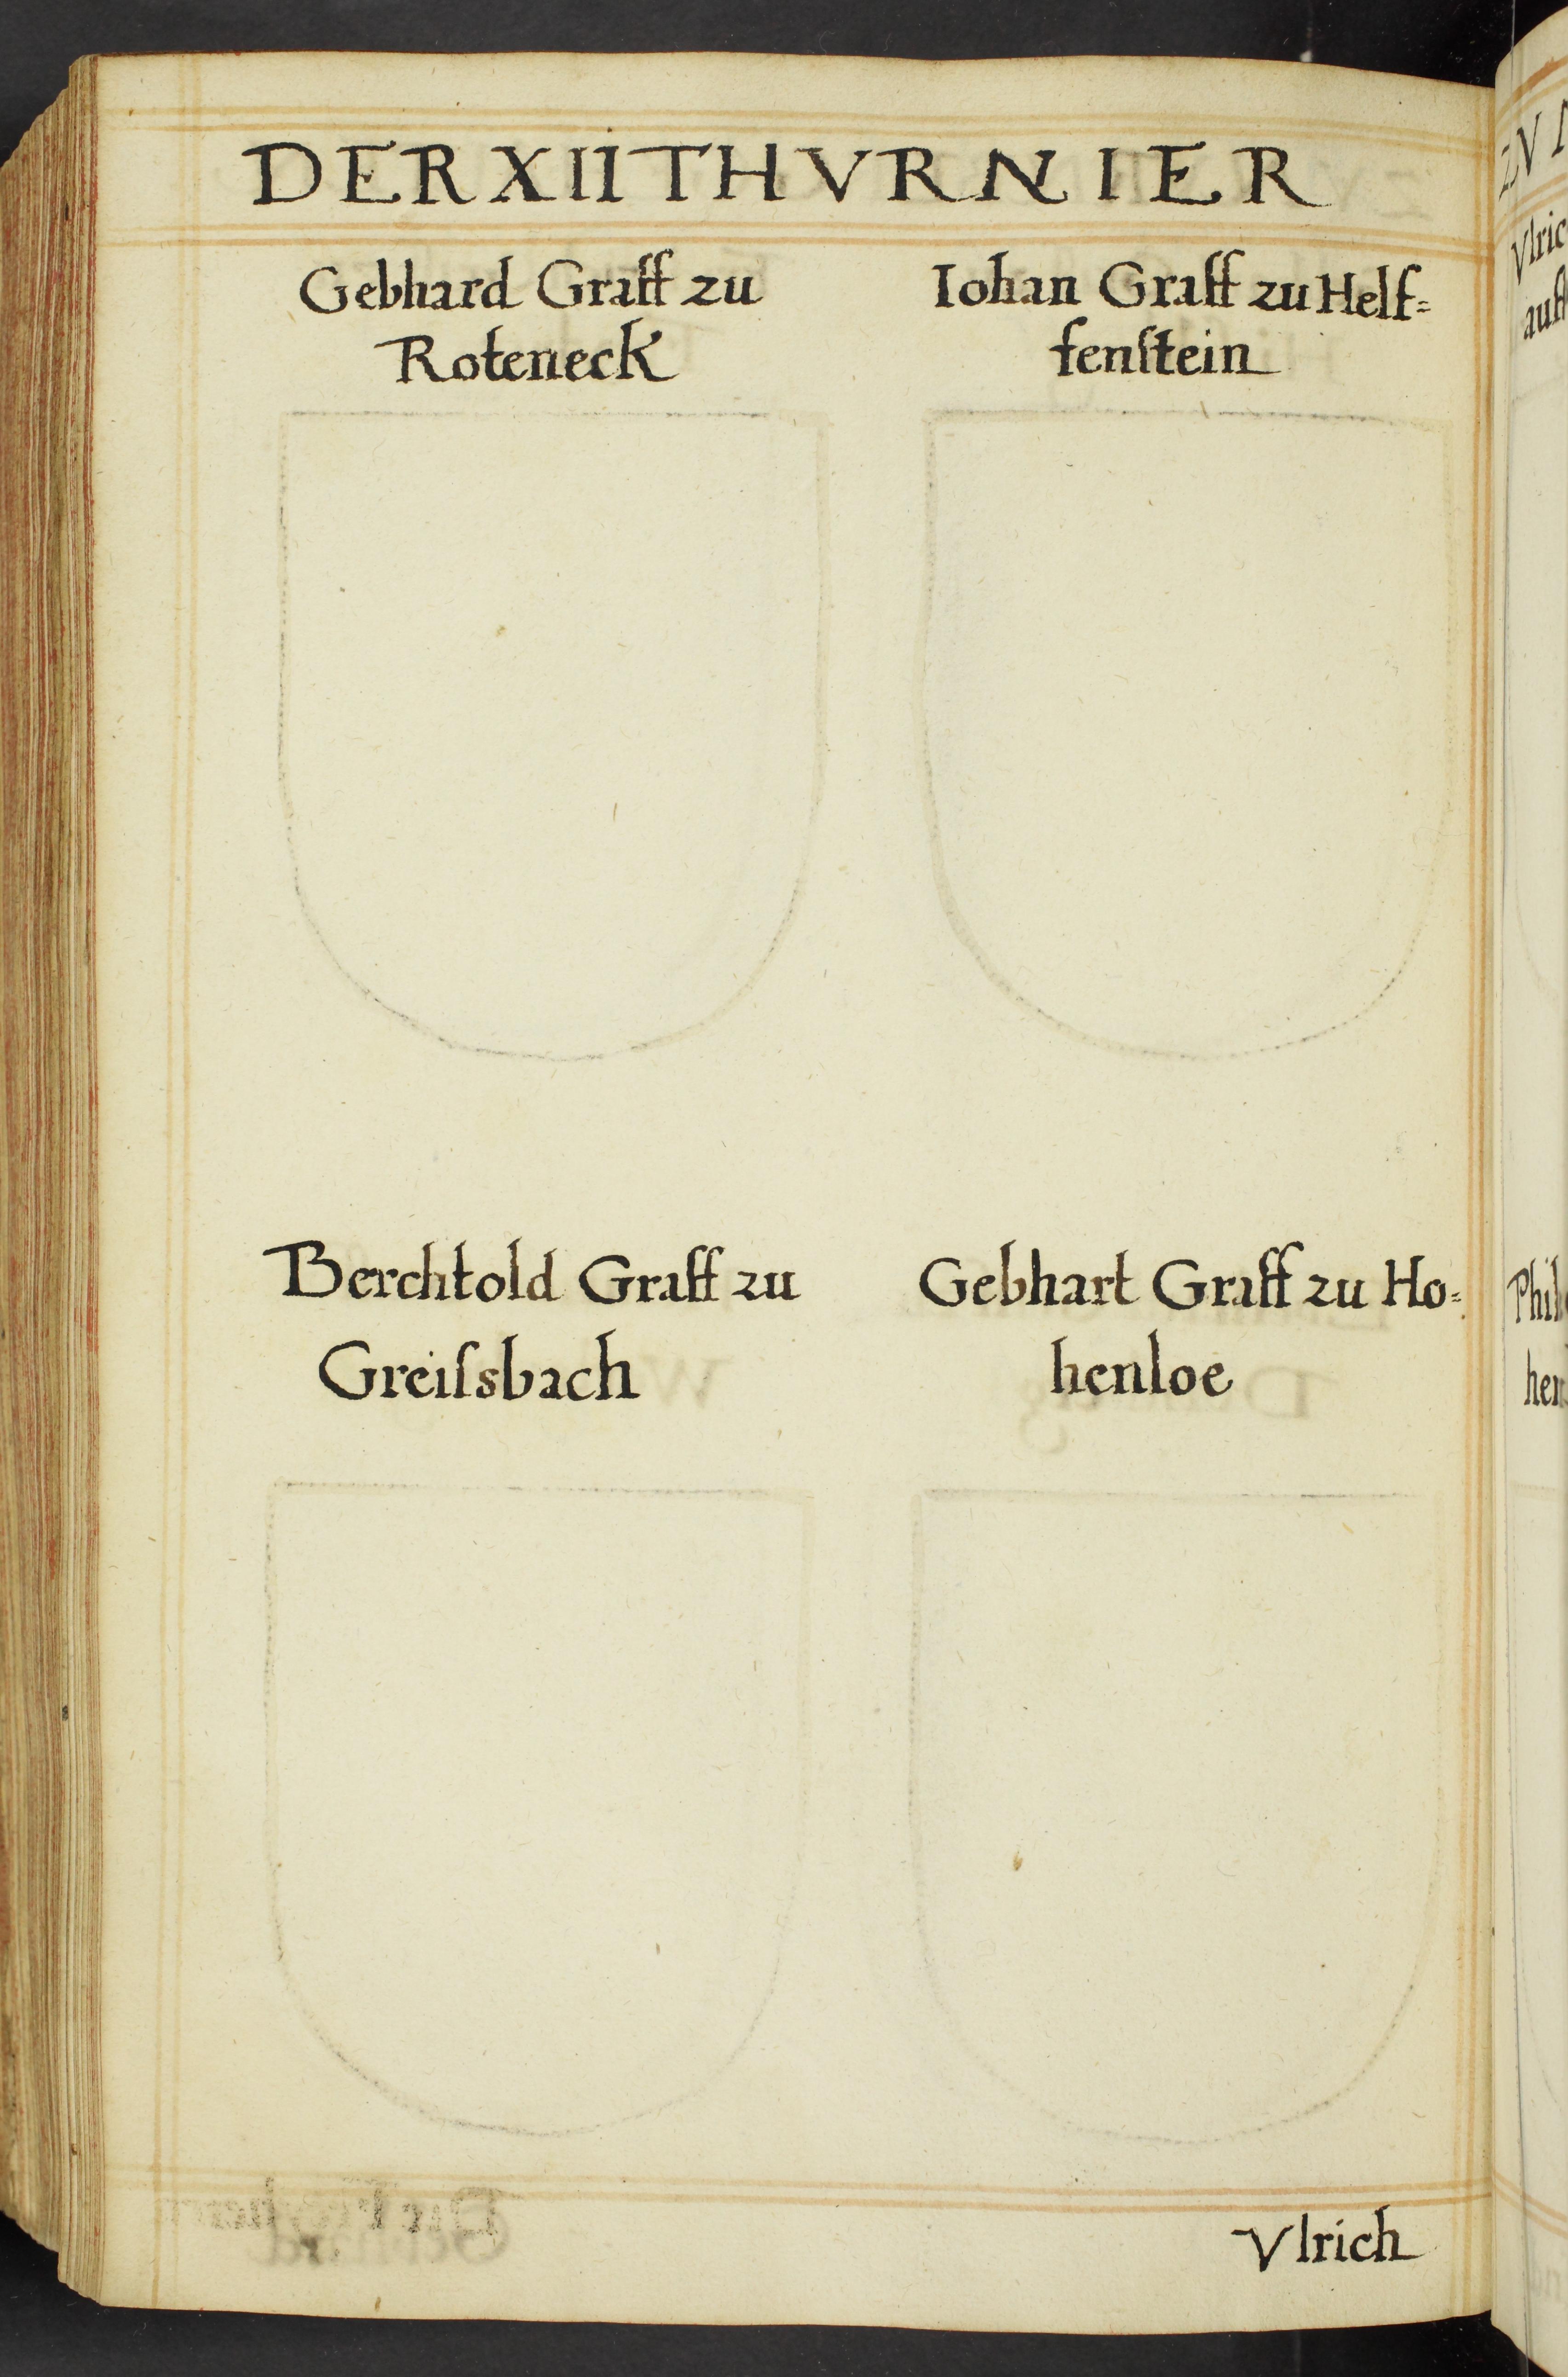 DER XII THVRNIER
Gebhard Graff zu
Roteneck
Iohan Graff zu Helf=
fenſtein
Berchtold Graff zu
Greiſsbach
Gebhart Graff zu Ho=
henloe
Vlrich